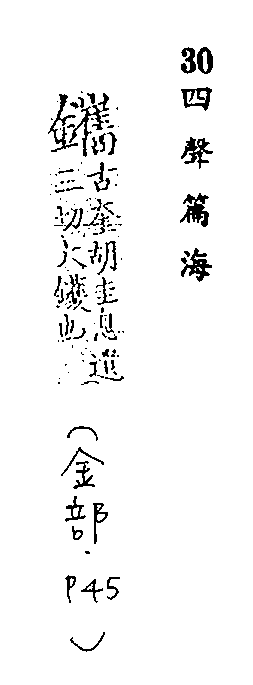 30四聲篇海
鑴古奎胡圭息
三切大鑊也
(金部.P45)